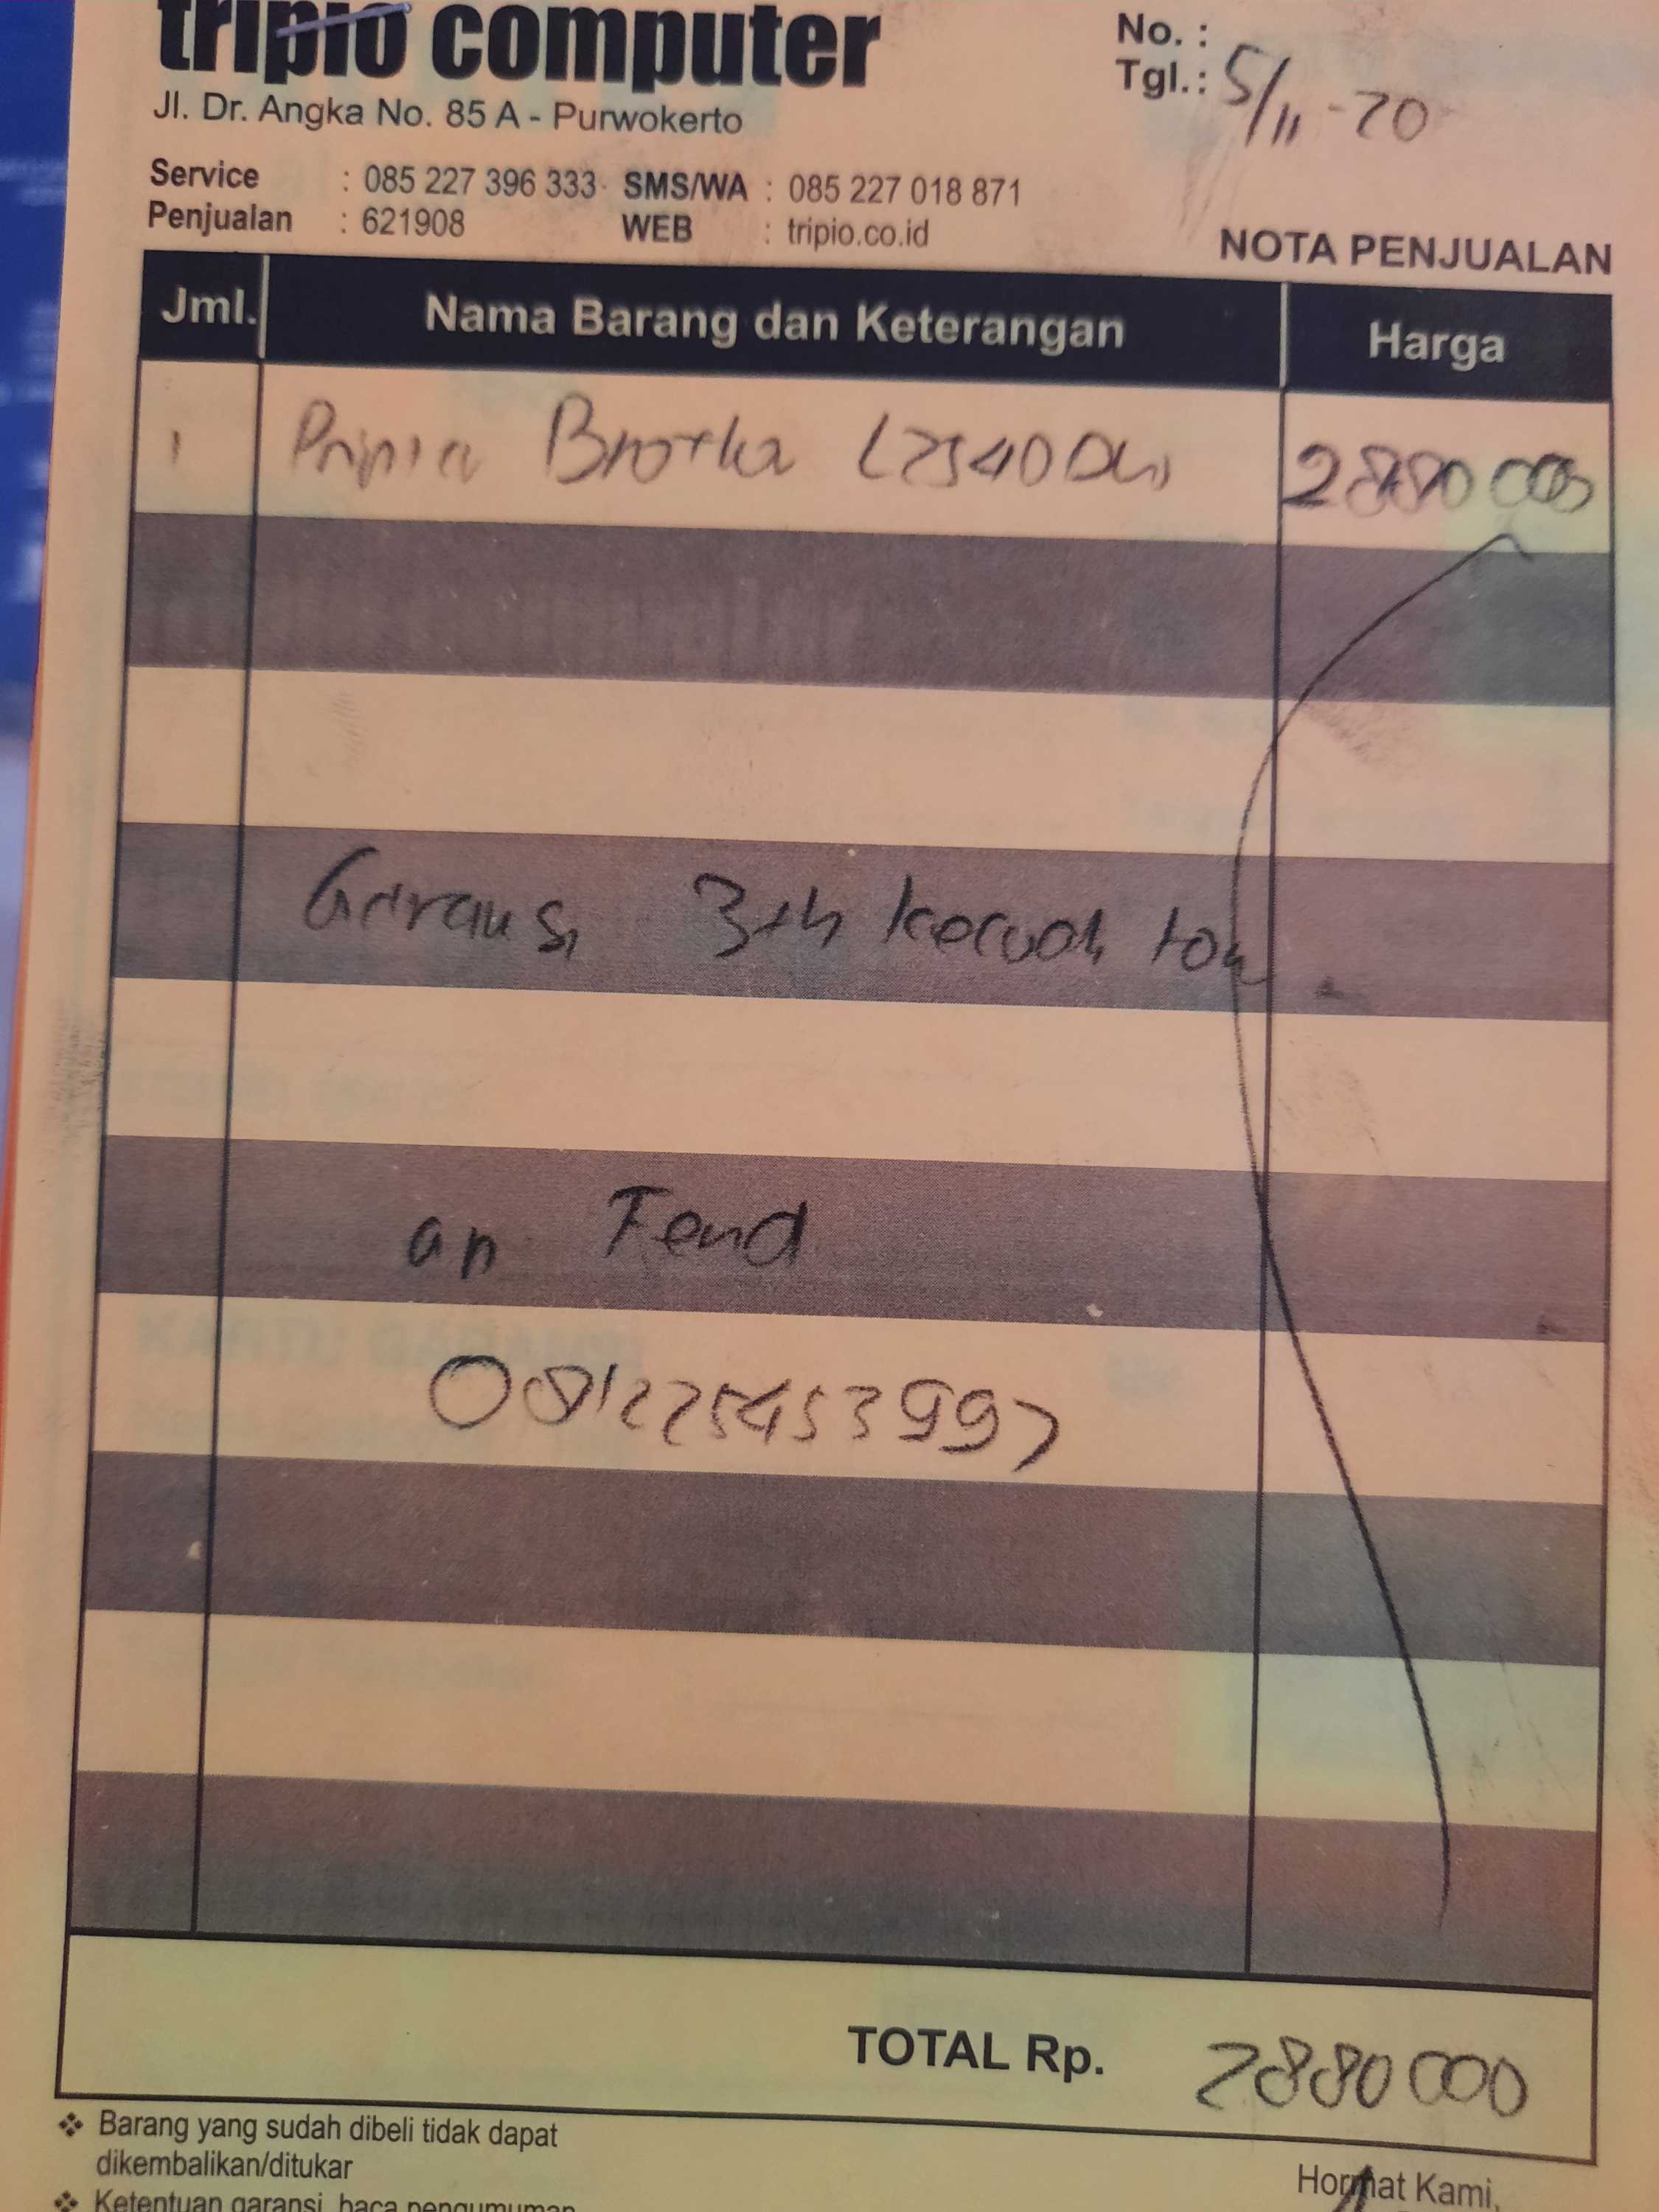 tripio computer
Jl. Dr. Angka No. 85 A - Purwokerto
No. :
Tgl. : 5/11 - 20
Service : 085 227 396 333 SMS/WA : 085 227 018 871
Penjualan : 621908 WEB : tripio.co.id
NOTA PENJUALAN
Jml. Nama Barang dan Keterangan Harga
1 L2540 2880 000
3th
an
081225453997
TOTAL Rp. 2880 000
❖ Barang yang sudah dibeli tidak dapat
dikembalikan/ditukar
Hormat Kami,
❖ Ketentuan garansi, baca pengumuman